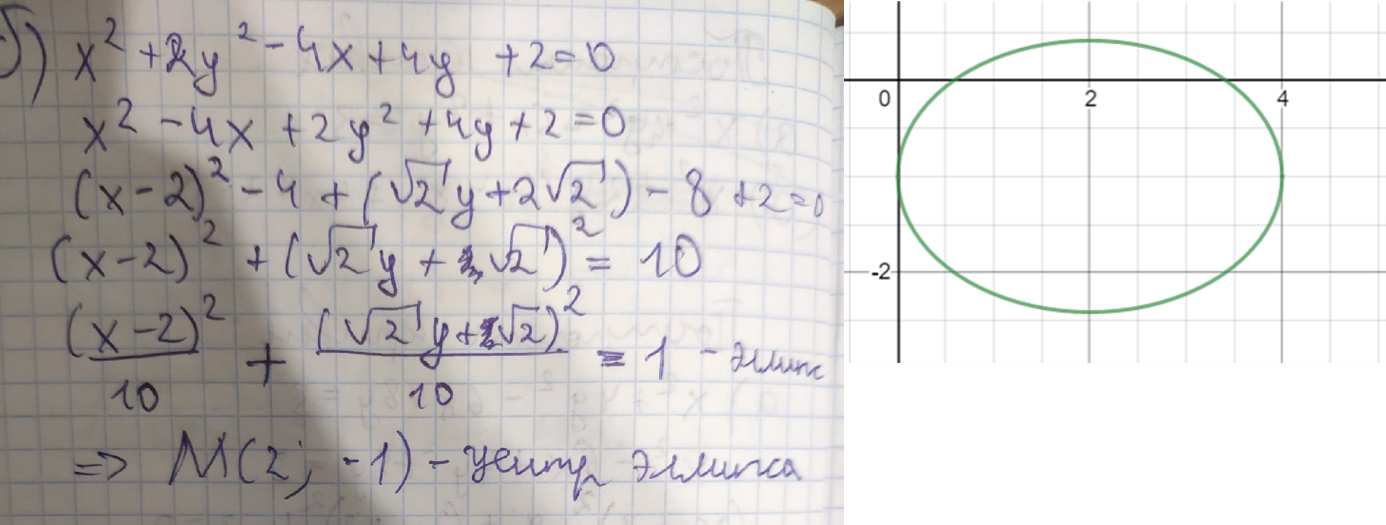 б) x² + 2y² - 4x + 4y + 2 = 0
x² - 4x + 2y² + 4y + 2 = 0
(x - 2)² - 4 + (√2 y + 2√2) - 8 + 2 = 0
(x - 2)² + (√2 y + √2)² = 10
(x - 2)²/10 + (√2 y + √2)²/10 = 1 - элипс
=> M(2; -1) - центр элипса
0 2 4
-2